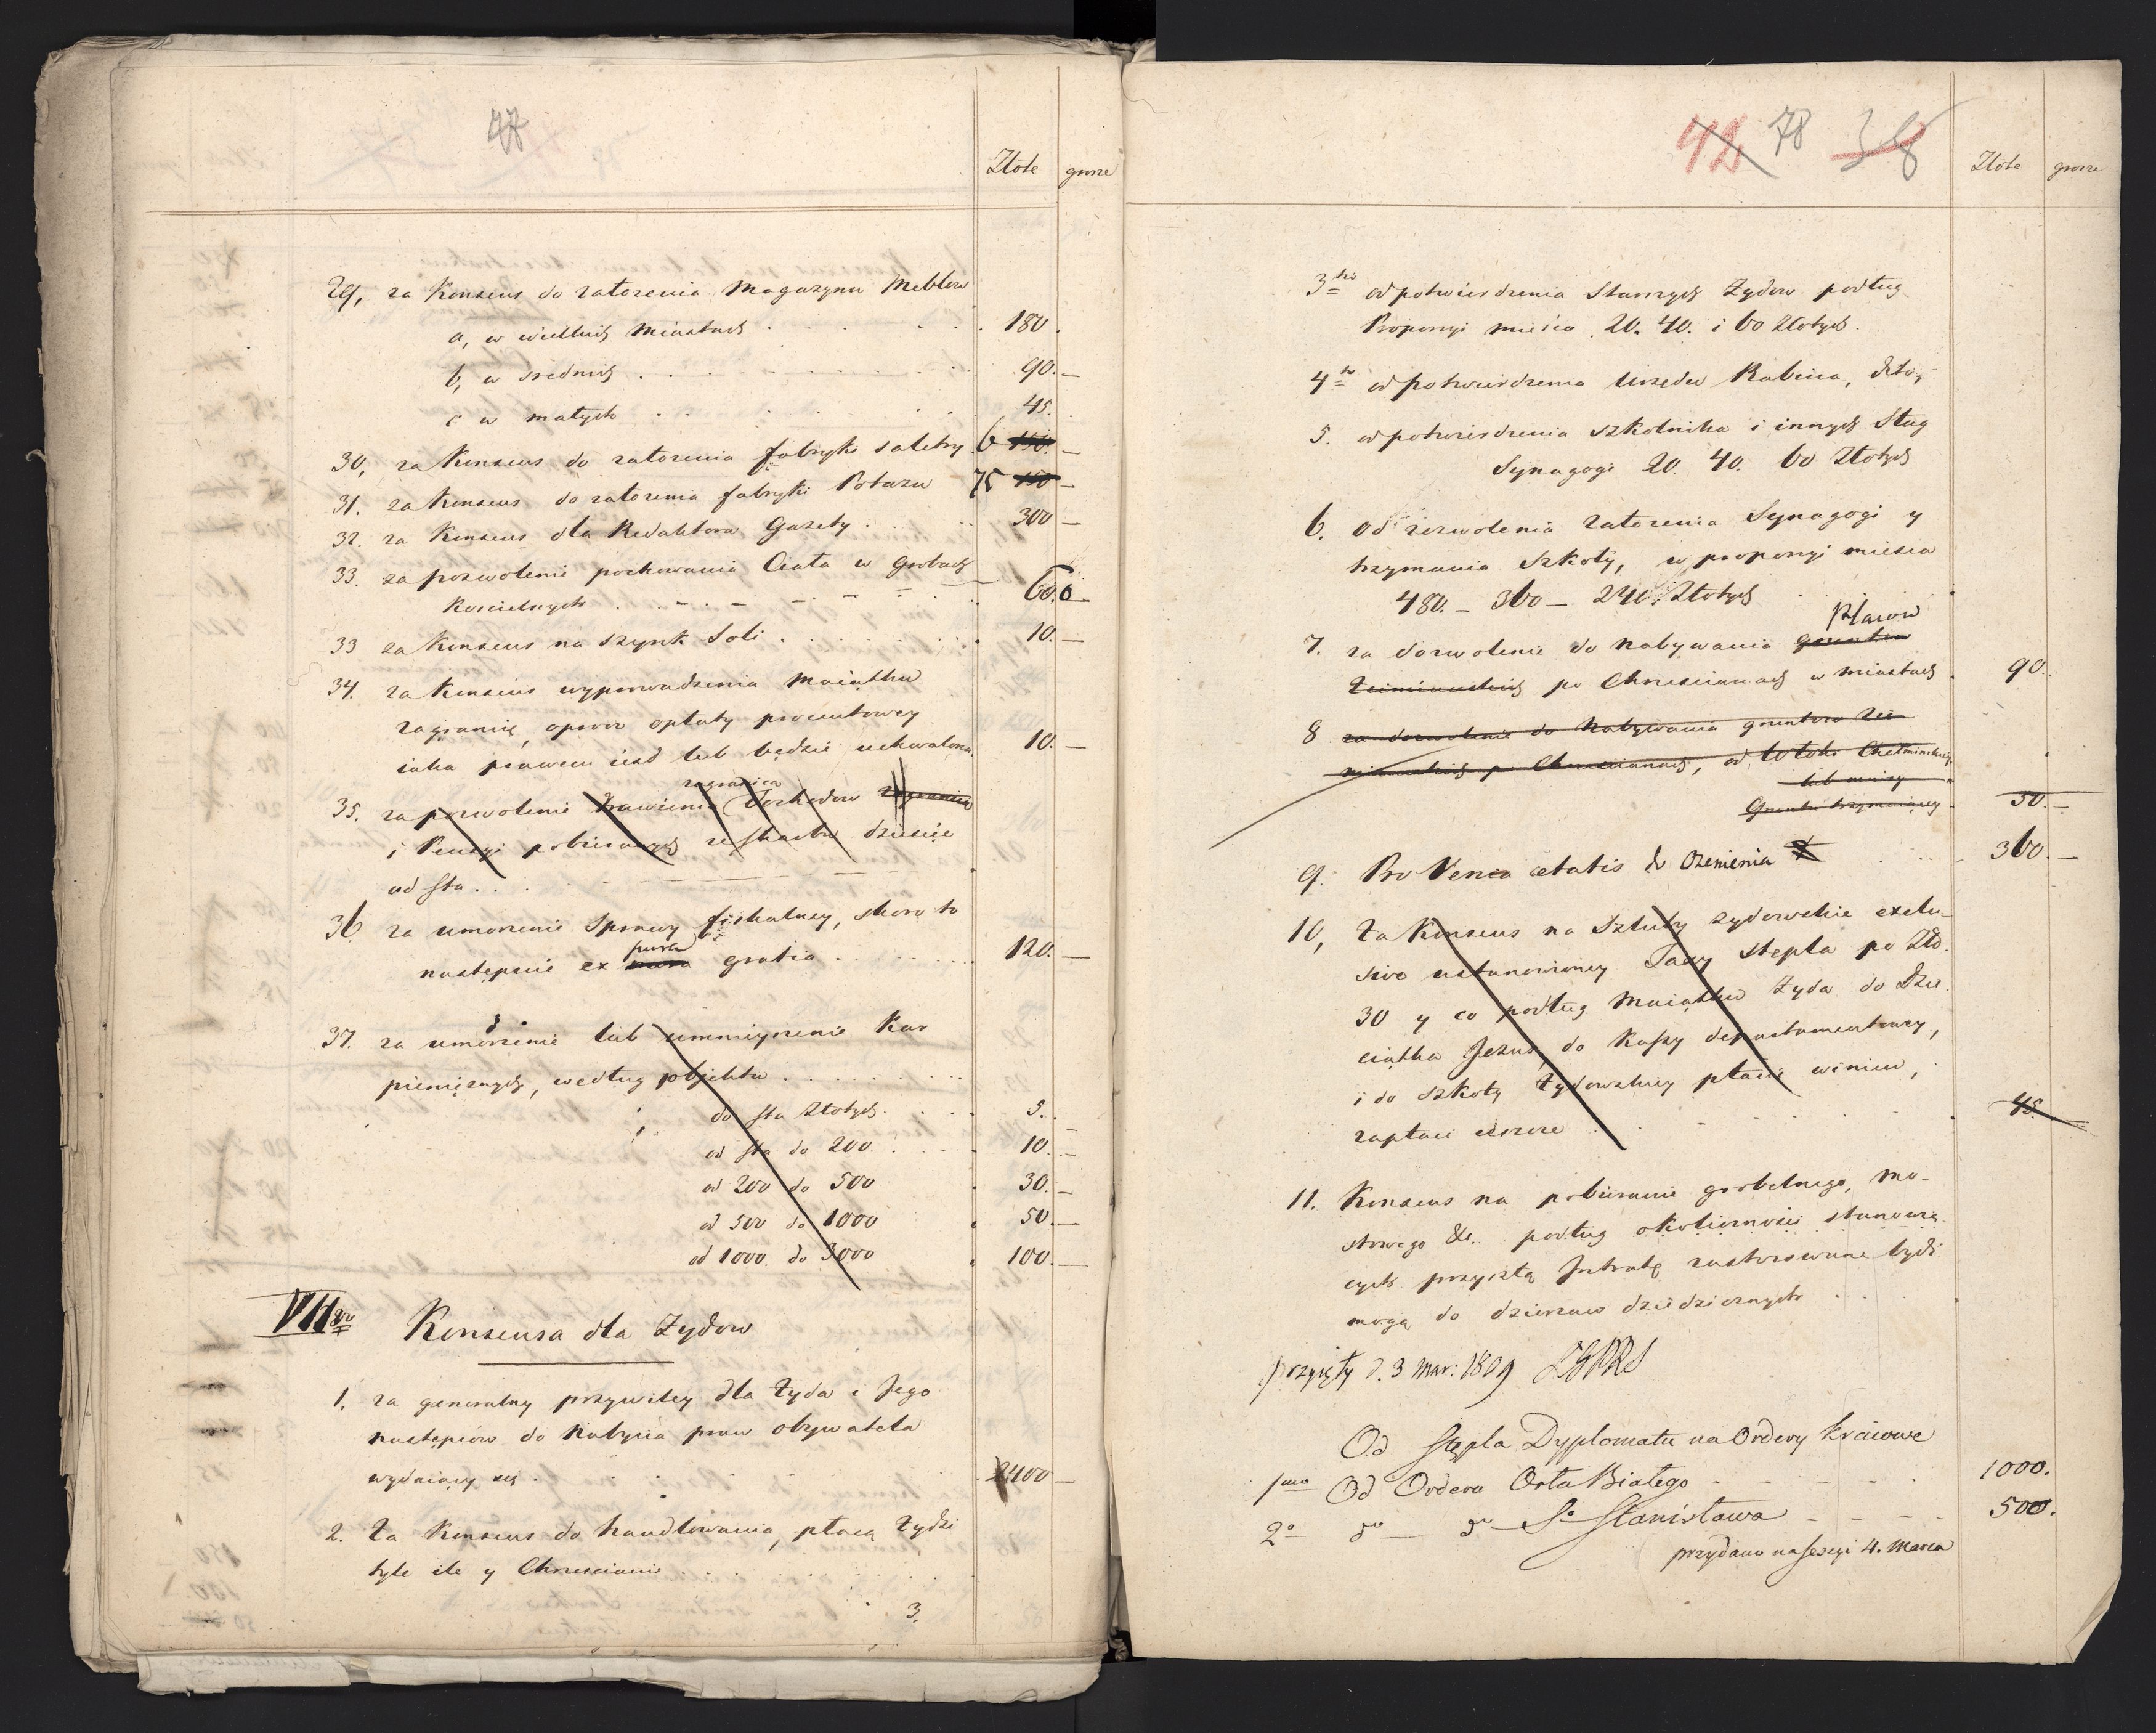 47
Złote grosze
29, za Konsens do założenia Magazynu Meblow
a, w wielkich Miastach . . . . 180.
b, w srednich . . . . 90. —
c w małych . . . . 45.
30, za Konsens do założenia fabryki saletry 6 150. —
31. za Konsens do założenia fabryki Potażu 75 150 —
32. za Konsens dla Redaktora Gazety . . . 300 —
33. za pozwolenie pochowania Ciała w Grobach
Koscielnych . . . . 60.0 —
33 za Konsens na szynk Soli . . . . 10. —
34. za Konsens wyprowadzenia Maiątku
zagranicę, oprocz opłaty procentowey
iaka prawem iest lub będzie uchwalona 10. —
zagranicą
35. za pozwolenie trawienia Dochodow zagranicą
i Pensyi pobieranych ze skarbu dziesięć
od sta . . .
36 za umorzenie Sprawy fiskalney, skoro to
pura
nastąpi ex gratia . . . . 120. —
37. za umorzenie lub umnieyszenie Kar
pieniężnych, według objektu . . . .
do sta Złotych . . . 5. —
od sta do 200 . . . 10. —
od 200 do 500 . 30. —
od 500 do 1000 . 50. —
od 1000 do 3000 . 100. —
VII Konsensa dla Żydow
1. za generalny przywiley dla Żyda i Jego
następcow do nabycia praw obywatela
wydaiący się . . . . 2400 —
2. Za Konsens do handlowania, płacą Żydzi
tyle ile y Chrzescianie . . . .
3.
42 78 38
Złote grosze
3tio od potwierdzenia Starszych Żydow podług
Proporcyi mieśca 20. 40. i 60 Złotych.
4to od potwierdzenia Urzędu Rabina, dito
5. od potwierdzenia szkolnika i innych Sług
Synagogi 20. 40. 60 Złotych
6. od zezwolenia założenia Synagogi y
trzymania Szkoły, w proporcyi mieśca
480. — 360 — 240. Złotych
Placow
7. za dozwolenie do nabywania gruntow
Ziemianskich po Chrzescianach w miastach . 90.
8 za dozwolenie do nabywania gruntow Zie-
mianskich po Chrzescianach, od Włoki Chełminskiey
lub mniey
Gruntu trzymaiącey . 50. —
9. Pro Venia aetatis do Ożenienia . . . 360. —
10, Za Konsens na Szluby żydowskie exclu-
sive ustanowioney Taxy stępla po Zło.
30 y co podług Maiątku Żyda do Dzie-
ciątka Jezus, do Kassy departamentowey,
i do szkoły Żydowskiey płacić winien,
zapłaci ieszcze . . . . 45.
11. Konsens na pobieranie grobelnego, mo-
stowego &c. podług okoliczności stanowią-
cych przyszłą Intratę zastosowane bydź
mogą do dzierzaw dziedzicznych . . . .
przyięty d. 3 Mar: 1809
Od Stępla Dyplomatu na Ordery Kraiowe
1mo Od Orderu Orła Białego — — — 1000.
2o do — do — So Stanisława — — — 500.
przydano na Sessyi 4. Marca